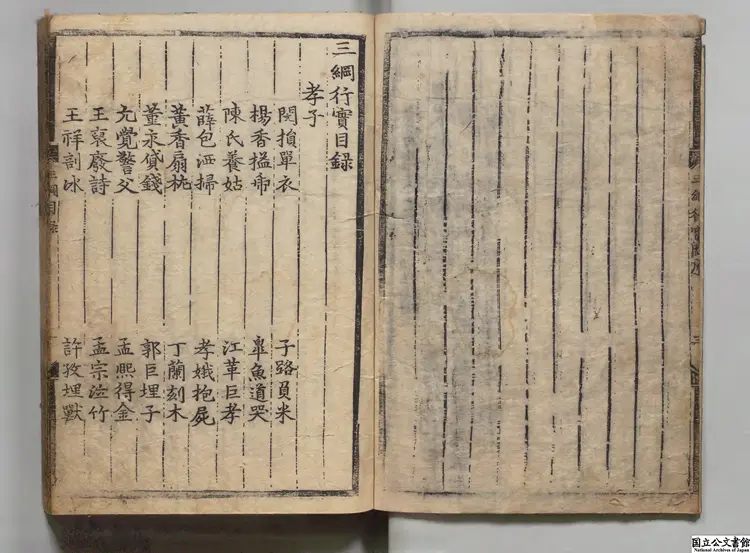 三綱行實目錄
孝子
閔損單衣 子路負米
楊香搤虎 皐魚道哭
陳氏養姑 江革巨孝
薛包洒掃 孝娥抱屍
黃香扇枕 丁蘭刻木
董永貸錢 郭巨埋子
元覺警父 孟熙得金
王裒廢詩 孟宗泣竹
王祥剖冰 許孜埋獸
国立公文書館
National Archives of Japan